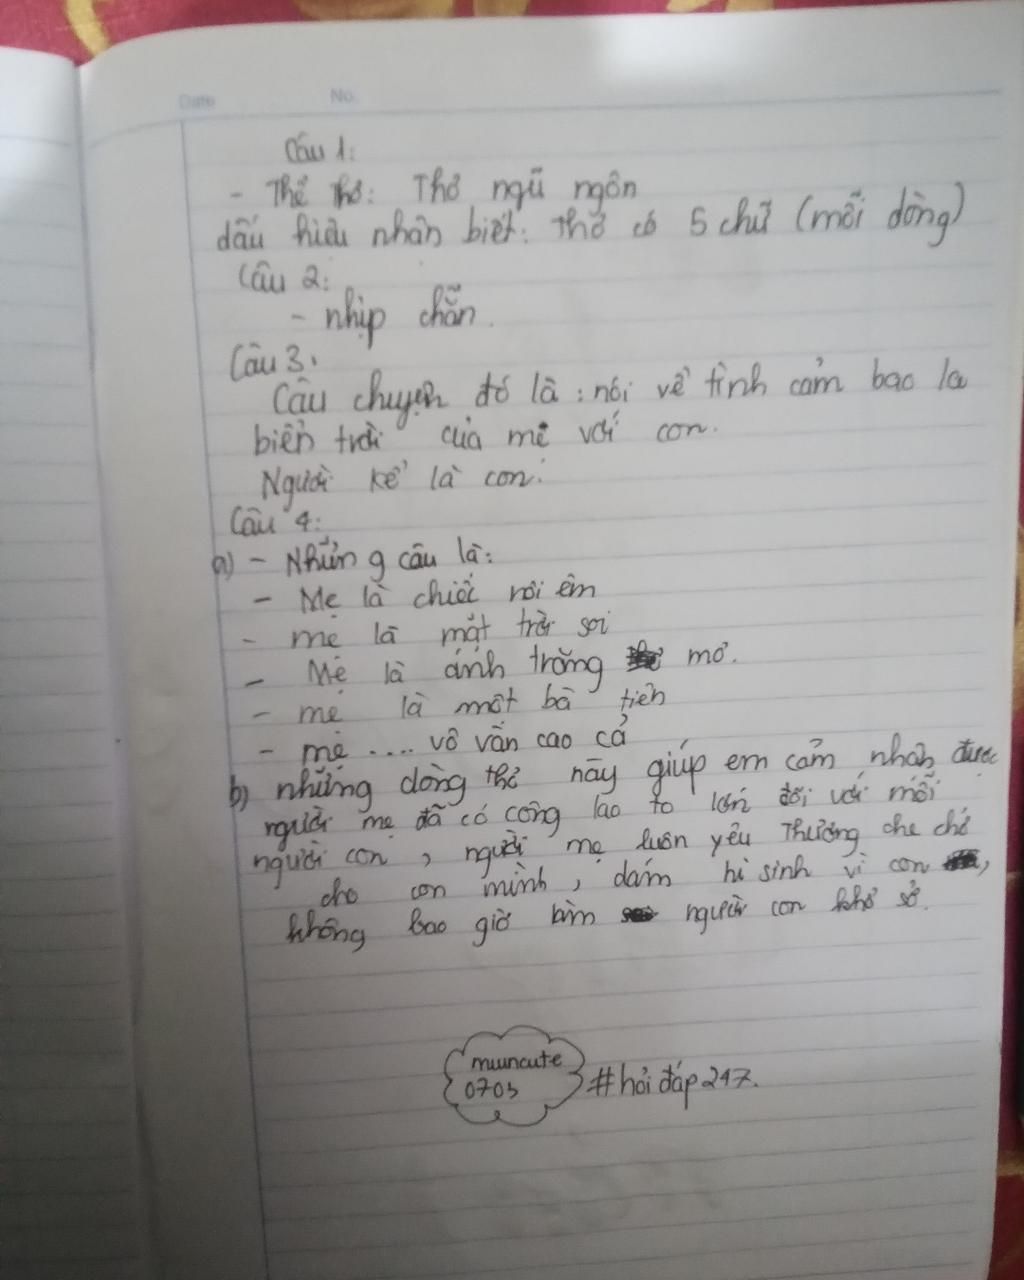 Date No.
Câu 1:
- Thể thơ: Thơ ngũ ngôn
dấu hiệu nhân biết: Thơ có 5 chữ (mỗi dòng)
Câu 2:
- nhịp chẵn.
Câu 3.
Câu chuyện đó là: nói về tình cảm bao la
biển trời của mẹ với con.
Người kể là con.
Câu 4:
a) - Những câu là:
- Mẹ là chiếc nôi êm
- mẹ là mặt trời soi
- Mẹ là ánh trăng mơ.
- mẹ là một bà tiên
- mẹ .... vô vằn cao cả
b) những dòng thơ này giúp em cảm nhận được
người mẹ đã có công lao to lớn đối với mỗi
người con, người mẹ luôn yêu thương che chở
cho con mình, dám hi sinh vì con,
không bao giờ làm người con khổ sở.
muuncute
0703
#hỏi đáp247.